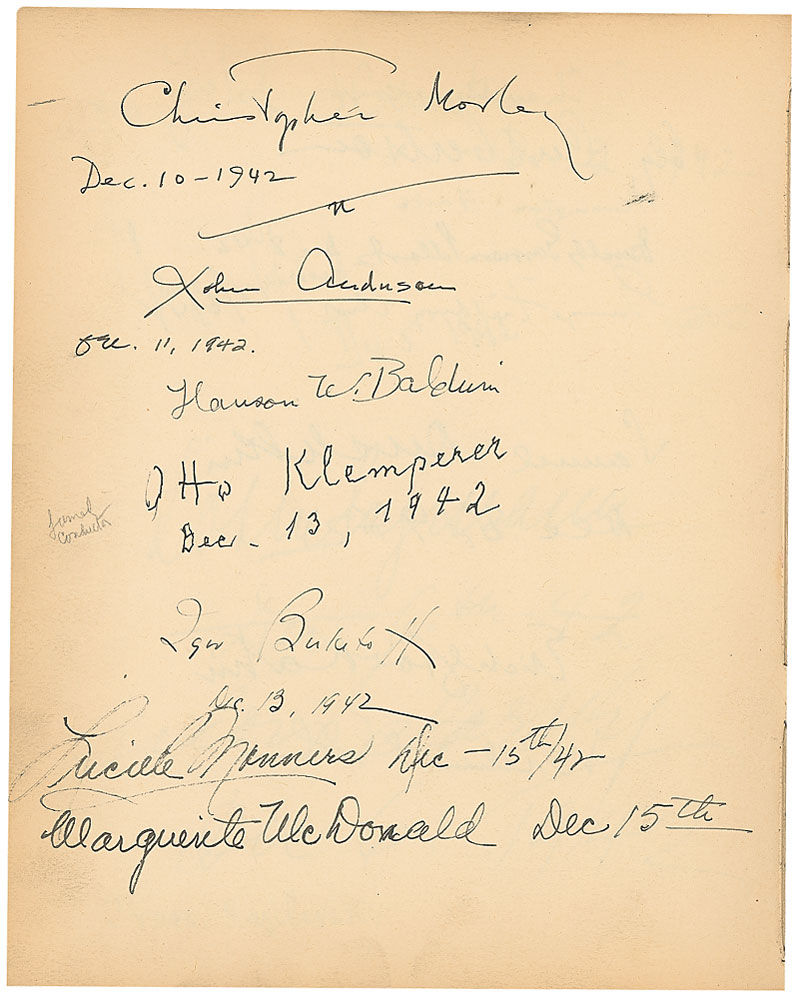 Christopher Morley
Dec. 10-1942
John Anderson
Dec. 11, 1942.
Hanson W. Baldwin
Otto Klemperer
Dec. 13, 1942
conductor
Igor Buketoff
Dec. 13, 1942
Lucille Manners Dec - 15th/42
Marguerite McDonald Dec 15th